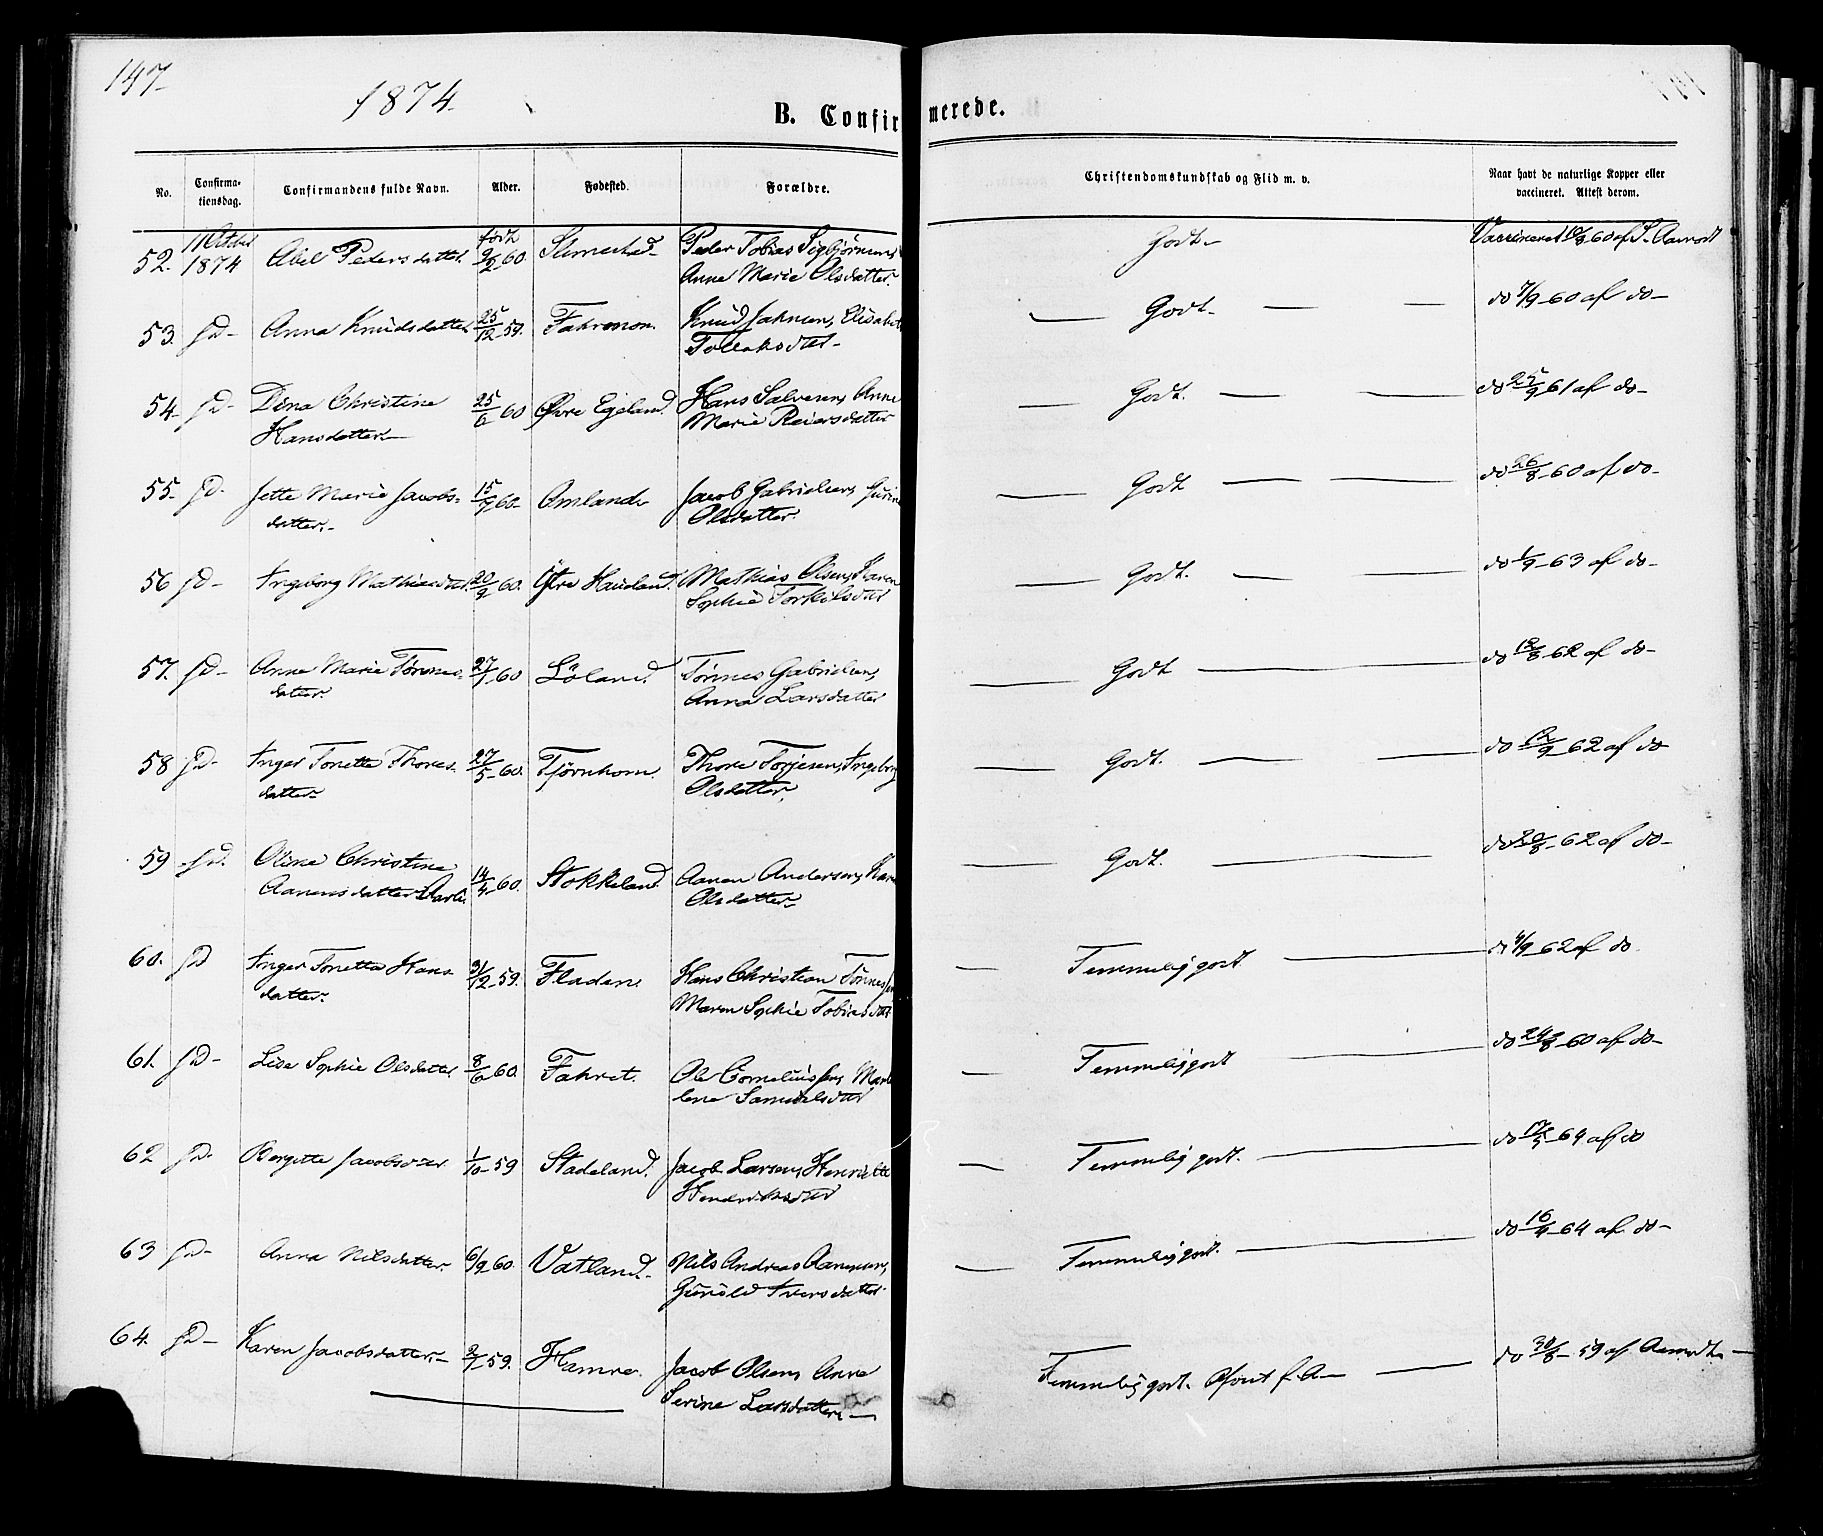 147-
1874.
B. Confirmerede.
No.
Confirma-
tionsdag.
Confirmandens fulde Navn.
Alder.
Fødested.
Forældre.
Christendomskundskab og Flid m. v.
Naar havt de naturlige Kopper eller
vaccineret. Attest derom.
52. 11 October 1874 Abel Pedersdatter født 60. Peder Tobias Sigbjørnsen,
Anne Marie Olsdatter. Godt- Vaccineret 60 af
53. do- Anna Knudsdatter 25/12-59. Knud Elisabet
Godt- do 7/9-60 af do-
54- do- Dina Christine 25/6 60 Øvre Egeland. Hans Salvesen, Anne Godt. do 25/9 61 af do-
Hansdatter- Marie Reiersdatter
55- do- Jette Marie Jacobs- 15/7 60- Omland- Jacob Gabrielsen, Godt do 26/8-60 af do-
datter.- Olsdatter.
56 do- Ingeborg Mathiasdtr. 20/9 60. Haukland. Mathias Olsen, Karen Godt. do 1/9-63 af do-
Sophie Torkilsdtr
57. do- Anne Marie Tønnes- 27/7 60 Löland. Tönnes Gabrielsen, Godt do 62 af do-
datter. Anna Larsdatter
58 do- Inger Tonette Thores- 27/5-60. Tjørnhom. Thore Torjesen, Ingeborg Godt. do 62 af do
datter- Olsdatter.
59 do. Oline Christine
Aanensdatter 14/4-60. Stokkeland. Aanen Andersen, Godt. do 20/8-62 af do-
Olsdatter-
60. do Inger Tonetta Hans- 31/12-59. Fladen. Hans Christian Tönnessen Temmelig godt do 4/9 62 af do.
datter. Maren Sophie Tobiasdtr
61. do- Lise Sophie Olsdatter 8/6 60. Ole Corneliussen, Temmelig godt do 24/8-60 af do-
lene Samuelsdtr
62 do- Bergitte Jacobsdtr. 1/10-59 Stadeland. Jacob Larsen, Henriette Temmelig godt. do 64 af do
Hendriksdtr
63 do- Anna Nilsdatter. 6/9 60. Vatland.- Nils Andreas Aanensen, Temmelig godt. do 64 af do-
Gunild Iversdatter-
64. do- Karen Jacobsdatter.- 2/7 59. Hamre. Jacob Olsen, Anne Temmelig godt. do 30/8-59 af
Serine Larsdatter.-